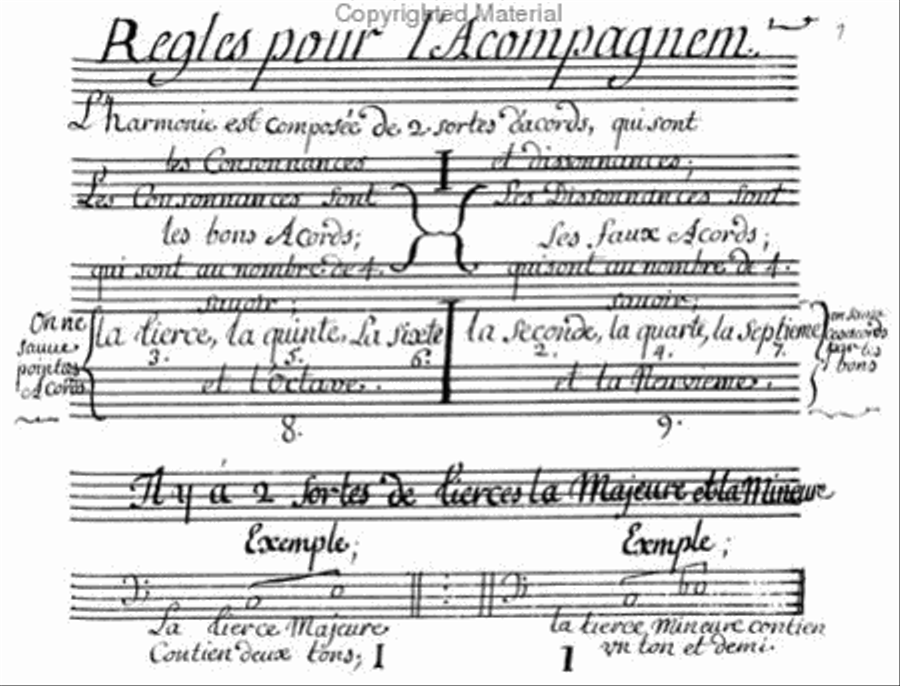 Copyrighted Material
Regles pour l'Acompagnem. 1
L'harmonie est composée de 2 sortes d'acords, qui sont
les Consonnances et dissonnances;
Les Consonnances sont Les Dissonnances sont
les bons Acords; Les faux Acords;
qui sont au nombre de 4. qui sont au nombre de 4.
savoir; savoir;
On ne la tierce, la quinte, La sixte la seconde, la quarte, la Septieme on sauve
sauve 3. 5. 6. 2. 4. 7. par les
point les et l'Octave. et la Neuvieme. bons
Acords
8. 9.
Il y á 2 sortes de tierces la Majeure et la Mineure
Exemple; Exmple;
La tierce Majeure la tierce mineure contien
Contien deux tons; vn ton et demi.